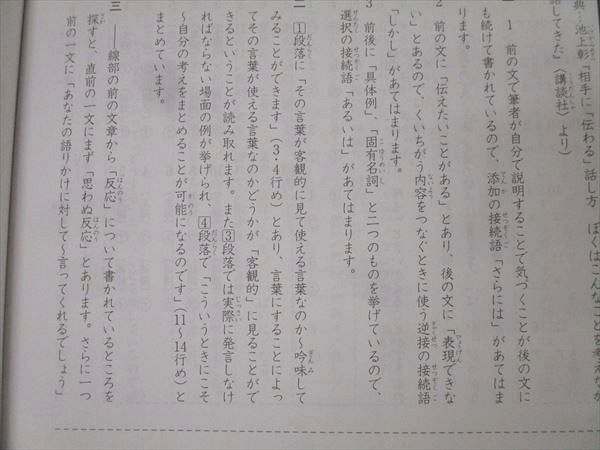 典…池上彰『相手に「伝わる」話し方　ぼくはこんなことを考えなが
話してきた』（講談社）より）
一　1　前の文で筆者が自分で説明することで気づくことが後の文に
も続けて書かれているので、添加の接続語「さらには」があてはま
ります。
2　前の文に「伝えたいことがある」とあり、後の文に「表現できな
い」とあるので、くいちがう内容をつなぐときに使う逆接の接続語
「しかし」があてはまります。
3　前後に「具体例」、「固有名詞」と二つのものを挙げているので、
選択の接続語「あるいは」があてはまります。
二　1段落に「その言葉が客観的に見て使える言葉なのか～吟味して
みることができます」（3・4行め）とあり、言葉にすることによっ
てその言葉が使える言葉なのかどうかが「客観的」に見ることがで
きるということが読み取れます。また3段落では実際に発言しなけ
ればならない場面の例が挙げられ、4段落で「こういうときにこそ
～自分の考えをまとめることが可能になるのです」（11～14行め）と
まとめています。
三　――線部の前の文章から「反応」について書かれているところを
探すと、直前の一文にまず「思わぬ反応」とあります。さらに一つ
前の一文に「あなたの語りかけに対して～言ってくれるでしょう」